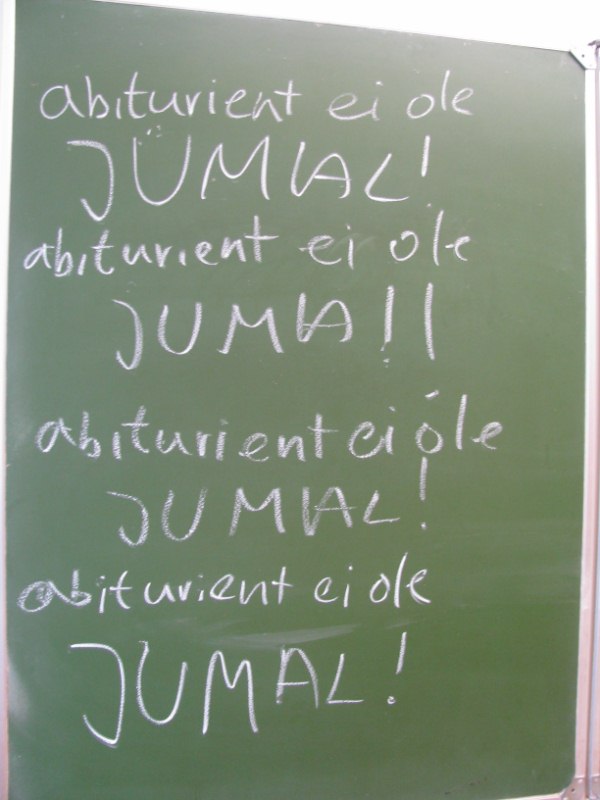 abiturient ei ole
JUMAL!
abiturient ei ole
JUMA!!
abiturient ei ole
JUMAL!
abiturient ei ole
JUMAL!